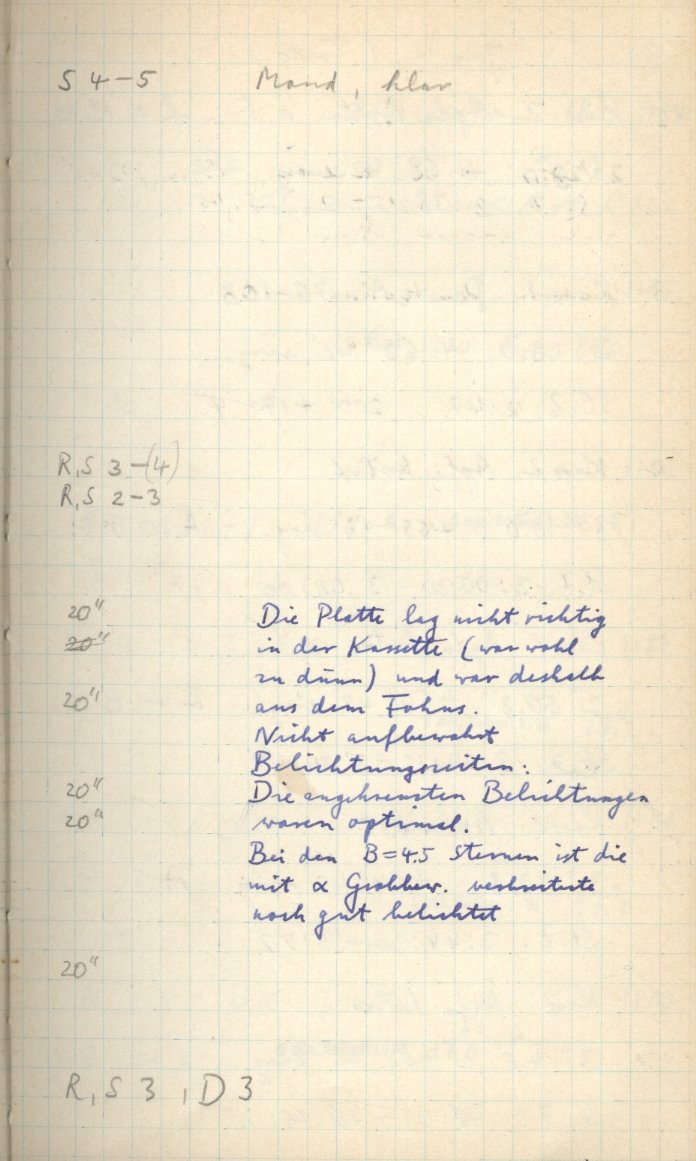 S 4-5 Mond, klar
R, S 3-(4)
R, S 2-3
20" Die Platte lag nicht richtig
20" in der Kassette (war wohl
zu dünn) und war deshalb
20" aus dem Fokus.
Nicht aufbewahrt
Belichtungszeiten:
20" Die angekreuzten Belichtungen
20" waren optimal.
Bei den B=4.5 Sternen ist die
mit α Grobbew. verbreiterte
noch gut belichtet
20"
R, S 3, D 3